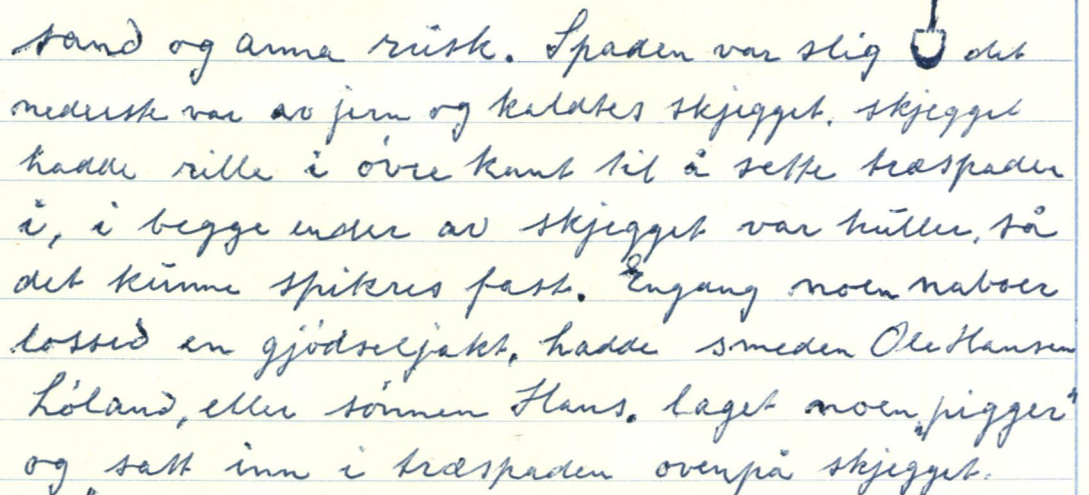 sand og anna rüsk. Spaden var slig det
nederste var av jern og kaldtes skjegget. skjegget
hadde rille i óvre kant til å sette træspaden
i, i begge ender av skjegget var hüller, så
det künne spikres fast. Engang noen naboer
lossed en gjódseljakt, hadde smeden Ole Hansen
Lóland, eller sónnen Hans. laget noen „pigger"
og satt inn i træspaden ovenpå skjegget.